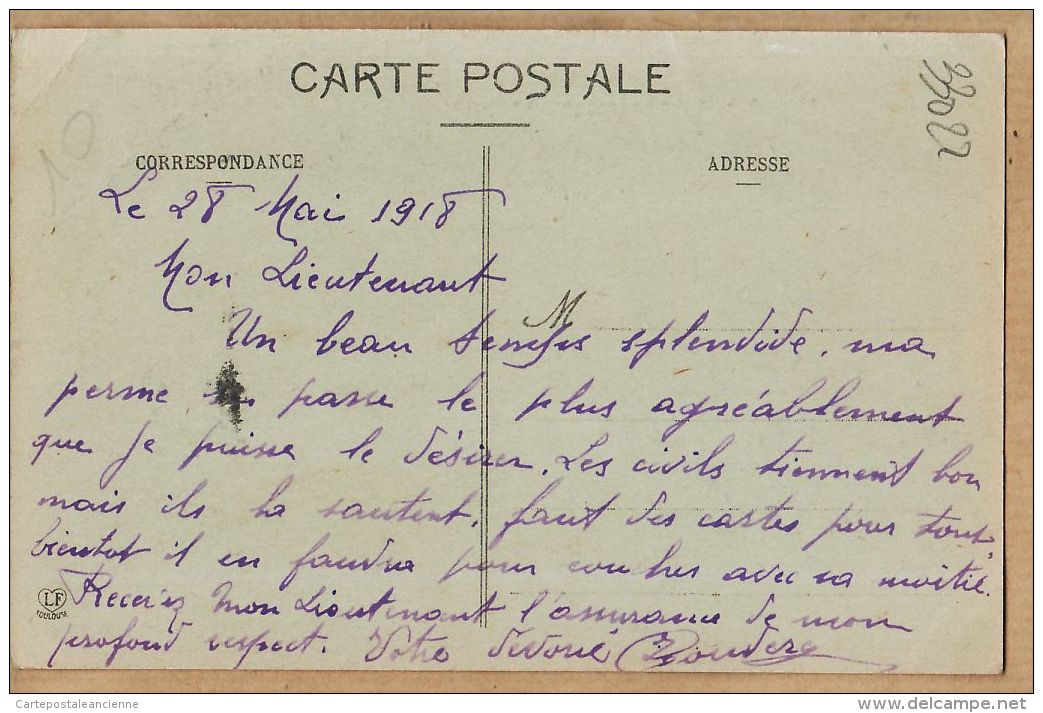 CARTE POSTALE
CORRESPONDANCE
ADRESSE
Le 28 Mai 1918
Mon Lieutenant
M
Un beau temps splendide. ma
perme passe le plus agréablement
que je puisse le désirer. Les civils tiennent bon
mais ils la sautent. faut des cartes pour tout,
bientot il en faudra pour coucher avec sa moitié.
Recevez Mon Lieutenant l'assurance de mon
profond respect. Votre dévoué
LF
TOULOUSE
Cartepostaleancienne
delcampe.net